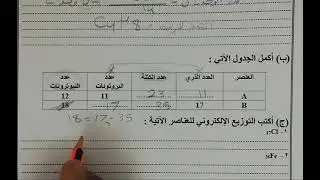 C4H8
(ب) أكمل الجدول الآتي :
العنصر العدد الذري عدد الكتلة عدد البروتونات عدد النيوترونات
A 11 23 11 12
B 17 35 17 18
18=17-35
(ج) أكتب التوزيع الإلكتروني للعناصر الآتية :
١- 17Cl
٢- 26Fe